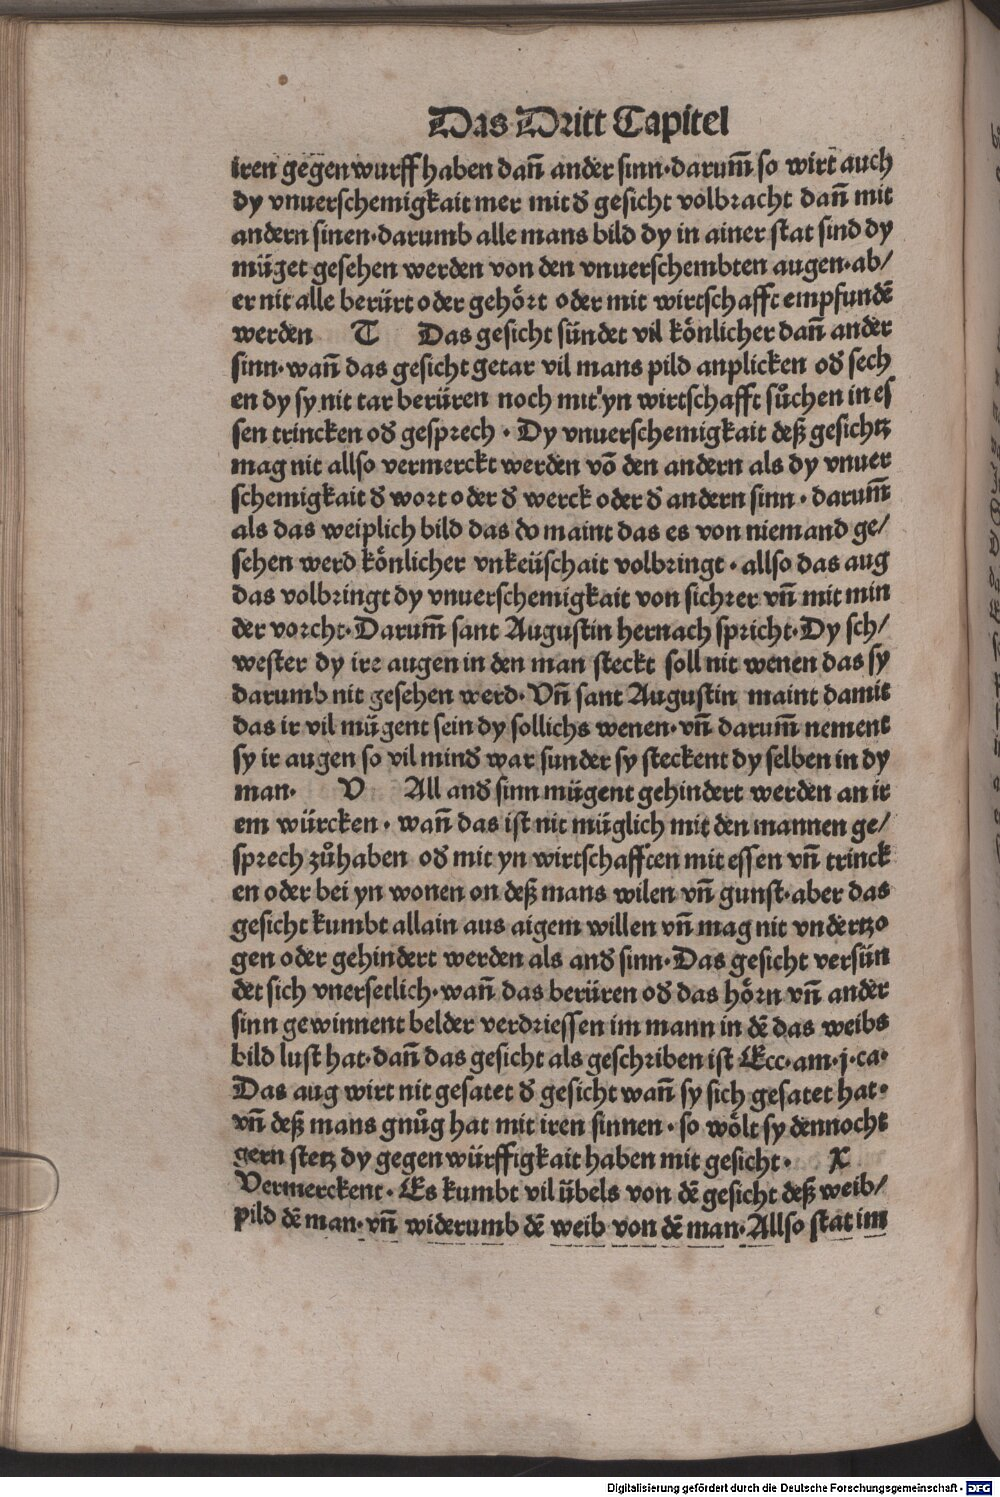 Das Dritt Capitel
iren gegenwurff haben dañ ander sinn·darum̃ so wirt auch
dy vnuerschemigkait mer mit đ gesicht volbracht dañ mit
andern sinen·darumb alle mans bild dy in ainer stat sind dy
müget gesehen werden von den vnuerschembten augen·ab/
er nit alle berürt oder gehört oder mit wirtschafft empfundẽ
werden T Das gesicht sündet vil könlicher dañ ander
sinn·wañ das gesicht getar vil mans pild anplicken ođ sech
en dy sy nit tar berüren noch mit yn wirtschafft sůchen in es
sen trincken ođ gesprech · Dy vnuerschemigkait deß gesichtz
mag nit allso vermerckt werden võ den andern als dy vnuer
schemigkait đ wort oder đ werck oder đ andern sinn · darum̃
als das weiplich bild das do maint das es von niemand ge/
sehen werd könlicher vnkeüschait volbringt · allso das aug
das volbringt dy vnuerschemigkait von sichrer vñ mit min
der vorcht·Darum̃ sant Augustin hernach spricht·Dy sch/
wester dy ire augen in den man steckt soll nit wenen das sy
darumb nit gesehen werd·Vñ sant Augustin maint damit
das ir vil mügent sein dy sollichs wenen·vñ darum̃ nement
sy ir augen so vil minđ war sunder sy steckent dy selben in dy
man· V All anđ sinn mügent gehindert werden an ir
em würcken · wañ das ist nit müglich mit den mannen ge/
sprech zůhaben ođ mit yn wirtschafften mit essen vñ trinck
en oder bei yn wonen on deß mans wilen vñ gunst·aber das
gesicht kumbt allain aus aigem willen vñ mag nit vndertzo
gen oder gehindert werden als anđ sinn·Das gesicht versün
det sich vnersetlich·wañ das berüren ođ das hörn vñ ander
sinn gewinnent belder verdriessen im mann in dẽ das weibs
bild lust hat·dañ das gesicht als geschriben ist Ecc·am·j·ca·
Das aug wirt nit gesatet đ gesicht wañ sy sich gesatet hat·
vñ deß mans gnůg hat mit iren sinnen · so wölt sy dennocht
gern stetz dy gegenwürffigkait haben mit gesicht· X
Vermerckent · Es kumbt vil übels von dẽ gesicht deß weib/
pild dẽ man·vñ widerumb dẽ weib von dẽ man·Allso stat im
Digitalisierung gefördert durch die Deutsche Forschungsgemeinschaft - DFG